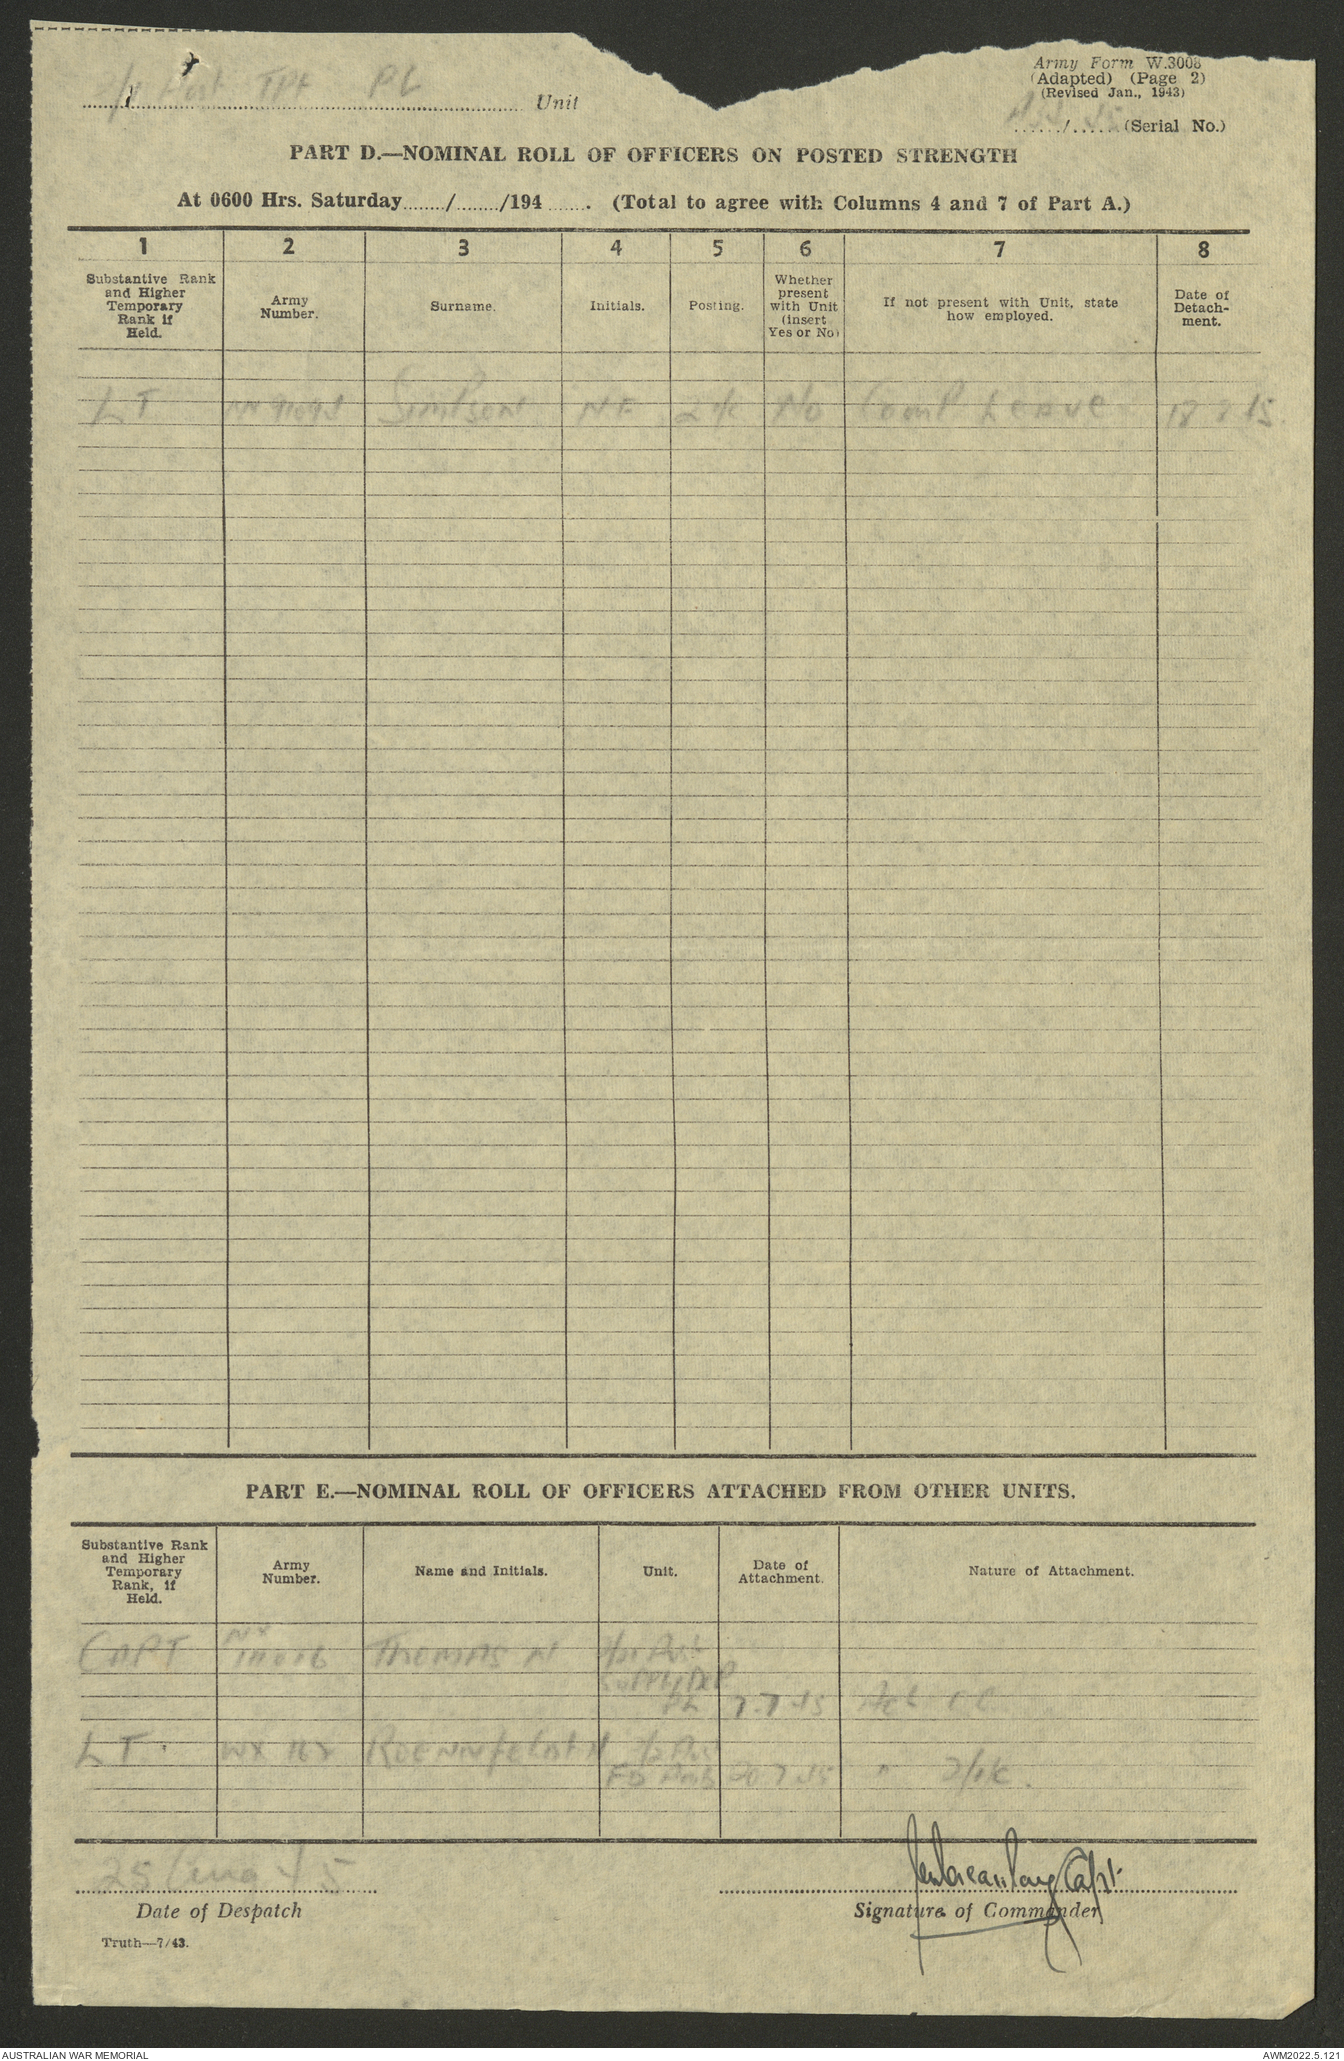 Aust Tpt PL Unit
Army Form W.3008
(Adapted) (Page 2)
(Revised Jan., 1943)
....../...... (Serial No.)
PART D.—NOMINAL ROLL OF OFFICERS ON POSTED STRENGTH
At 0600 Hrs. Saturday......./......../194....... (Total to agree with Columns 4 and 7 of Part A.)
1 2 3 4 5 6 7 8
Substantive Rank and Higher Temporary Rank if Held.
Army Number.
Surname.
Initials.
Posting.
Whether present with Unit (insert Yes or No)
If not present with Unit, state how employed.
Date of Detach-ment.
LT Simpson NF 2 i/c No Comp Leave 45
PART E.—NOMINAL ROLL OF OFFICERS ATTACHED FROM OTHER UNITS.
Substantive Rank and Higher Temporary Rank, if Held.
Army Number.
Name and Initials.
Unit.
Date of Attachment.
Nature of Attachment.
CAPT NX THOMAS N Aust
Supply Dep
PL 7.7.45
LT. WX ROENNFELDT H Aust
FD Amb 20 7 45 " 2/i/c.
25 Aug 45
Capt
Date of Despatch
Signature of Commander
Truth—7/43.
AUSTRALIAN WAR MEMORIAL
AWM2022.5.121